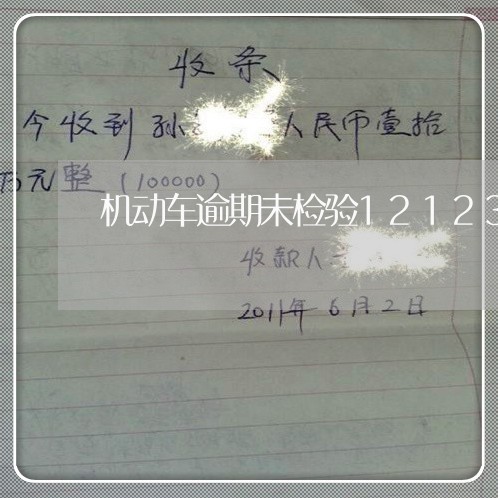 收条
今收到孙 人民币壹拾
万元整(100000)
机动车逾期未检验12123
收款人
2011年6月2日